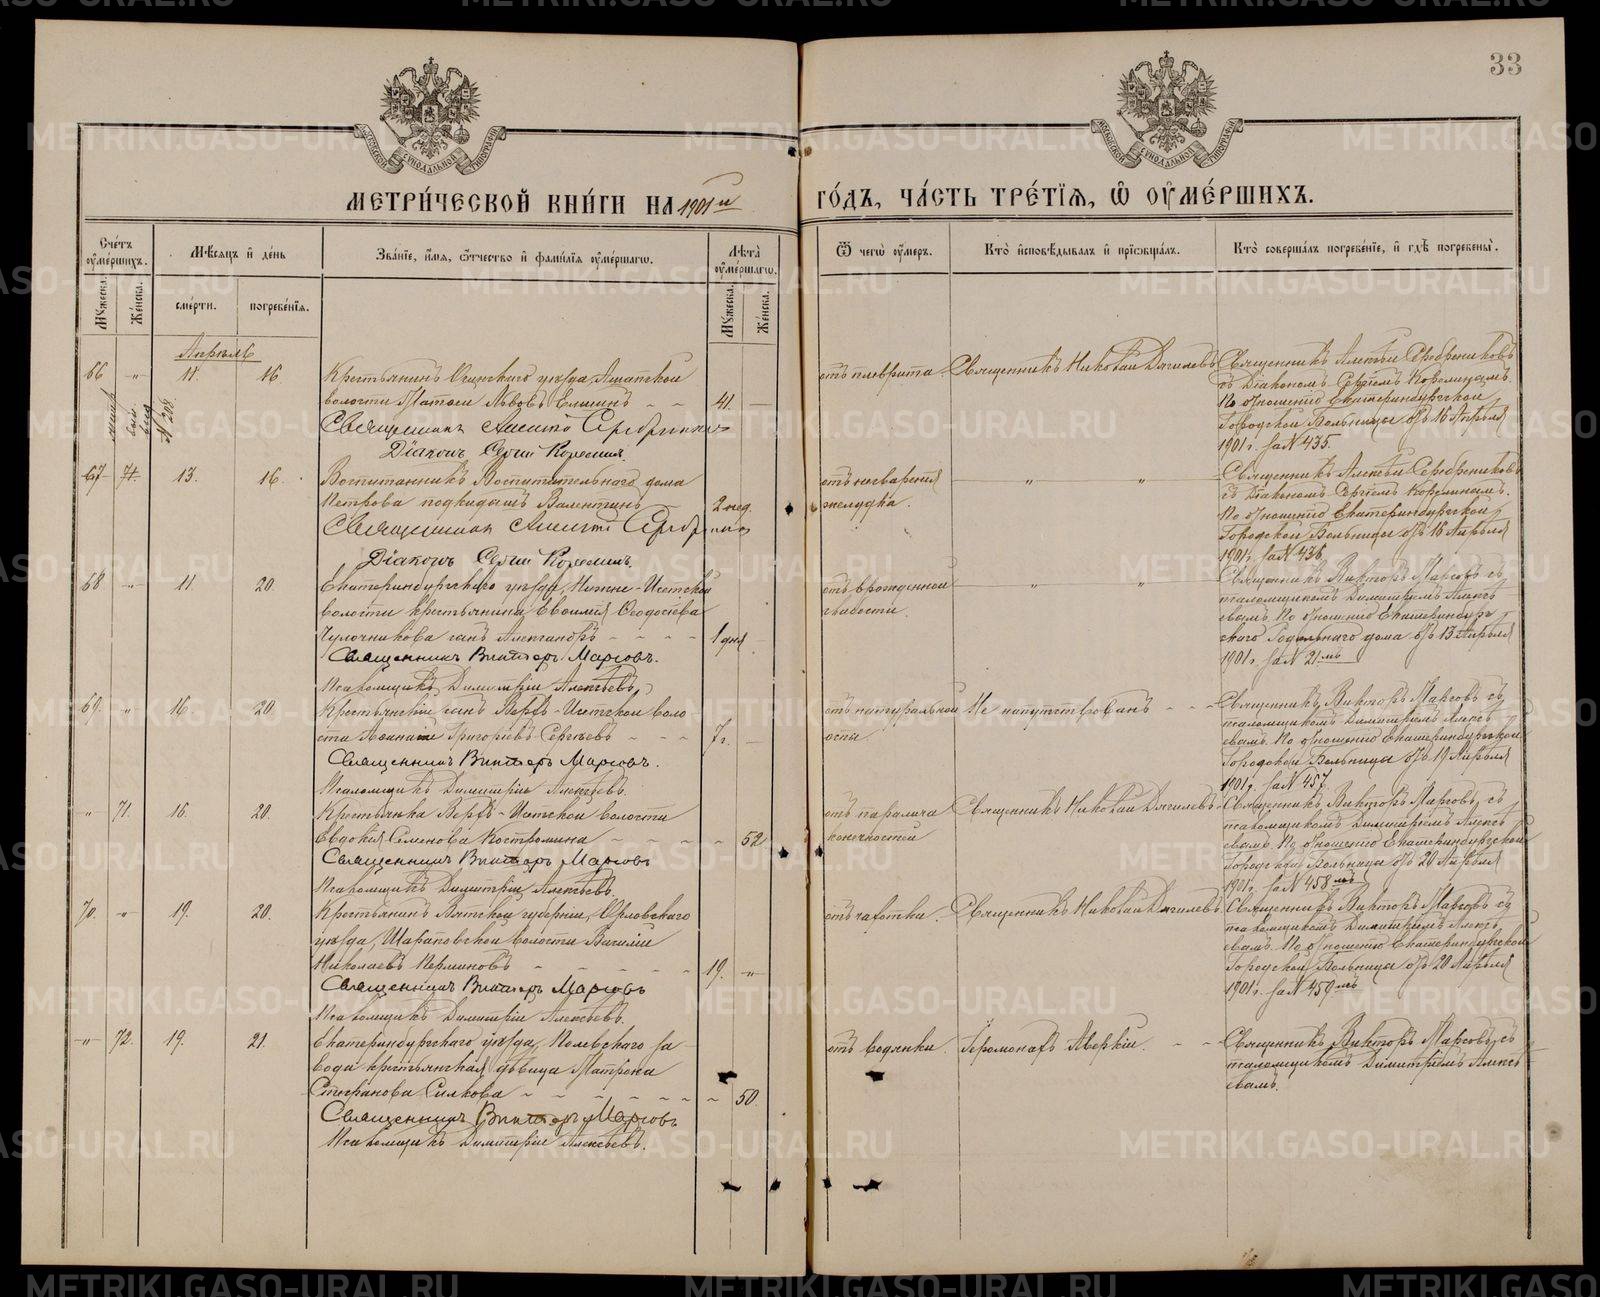 33
МЕТРИ́ЧЕСКОЙ КНИ́ГИ НА 1901й ГО́ДЪ, ЧА́СТЬ ТРЕ́ТІЯ, Ѿ ОУ҆МЕ́РШИХЪ.
Сче́тъ оумершихъ.
Мѣсяцъ и день
Зва́ніе, имя, отчество и фамилія оумершаго.
Лѣта оумершаго.
Ѿ чего оумеръ.
Кто исповѣдывалъ и пріобщалъ.
Кто совершалъ погребеніе, и гдѣ погребены.
Мужеска.
Женска.
смерти.
погребенія.
Мужеска.
Женска.
Апрѣль
66 „ 11. 16
Крестьянинъ Осинскаго уѣзда, Ашапской
волости Платонъ Львовъ Еликинъ 41.
Священникъ Алексѣй Серебренниковъ
Діаконъ Сергій Корелинъ.
отъ плеврита.
Священникъ Николай Дягилевъ
Священникъ Алексѣй Серебрениковъ
съ Діакономъ Сергіемъ Корелинымъ.
По отношенію Екатеринбургской
Городской Больницы отъ 16 Апрѣля
1901 г. за N 435.
N 208
67 13. 16.
Воспитанникъ Воспитательнаго дома
Петрова подкидышъ Валентинъ 2 нед.
Священникъ Алексѣй Серебренниковъ
Діаконъ Сергій Корелинъ.
отъ несваренія
желудка.
„ „
Священникъ Алексѣй Серебрениковъ
съ Діакономъ Сергіемъ Корелинымъ.
По отношенію Екатеринбургской
Городской Больницы отъ 16 Апрѣля
1901 г. за N 436.
68 „ 11 20.
Екатеринбургскаго уѣзда, Нижне-Исетской
волости крестьянина Евѳимія Ѳеодосіева
Чулочникова сынъ Александръ 1 дня
Священникъ Викторъ Марсовъ.
Псаломщикъ Димитрій Алексѣевъ.
отъ врожденной
слабости.
„ „
Священникъ Викторъ Марсовъ съ
псаломщикомъ Димитріемъ Алексѣ
евымъ. По отношенію Екатеринбург
скаго Родильнаго дома отъ 13 Апрѣля
1901 г. за N 21мъ
69. „ 16 20.
Крестьянскій сынъ Верхъ-Исетской воло-
сти Аѳанасій Григорьевъ Сергѣевъ 7 г.
Священникъ Викторъ Марсовъ.
Псаломщикъ Димитрій Алексѣевъ.
отъ натуральной
оспы.
Не напутствованъ
Священникъ Викторъ Марсовъ съ
псаломщикомъ Димитріемъ Алексѣ
евымъ. По отношенію Екатеринбургской
Городской Больницы отъ 19 Апрѣля
1901 г. за N 457.
„ 71. 16. 20.
Крестьянка Верхъ-Исетской волости
Евдокія Семенова Костромина 52
Священникъ Викторъ Марсовъ
Псаломщикъ Димитрій Алексѣевъ.
отъ паралича
конечностей
Священникъ Николай Дягилевъ
Священникъ Викторъ Марсовъ, съ
псаломщикомъ Димитріемъ Алексѣ
евымъ. По отношенію Екатеринбургской
Городской Больницы отъ 20 Апрѣля
1901 г. за N 458мъ
70. „ 19. 20.
Крестьянинъ Вятской губерніи, Орловскаго
уѣзда, Шараповской волости Василій
Николаевъ Перминовъ 19. „
Священникъ Викторъ Марсовъ
Псаломщикъ Димитрій Алексѣевъ.
отъ чахотки.
Священникъ Николай Дягилевъ
Священникъ Викторъ Марсовъ съ
псаломщикомъ Димитріемъ Алексѣ
евымъ. По отношенію Екатеринбургской
Городской Больницы отъ 20 Апрѣля
1901 г. за N 459мъ
„ 72. 19. 21.
Екатеринбургскаго уѣзда, Полевскаго за-
вода крестьянская дѣвица Матрона
Стефанова Силкова 50.
Священникъ Викторъ Марсовъ
Псаломщикъ Димитрій Алексѣевъ.
отъ водянки.
Іеромонахъ Аверкій.
Священникъ Викторъ Марсовъ, съ
псаломщикомъ Димитріемъ Алексѣ
евымъ.
METRIKI.GASO-URAL.RU